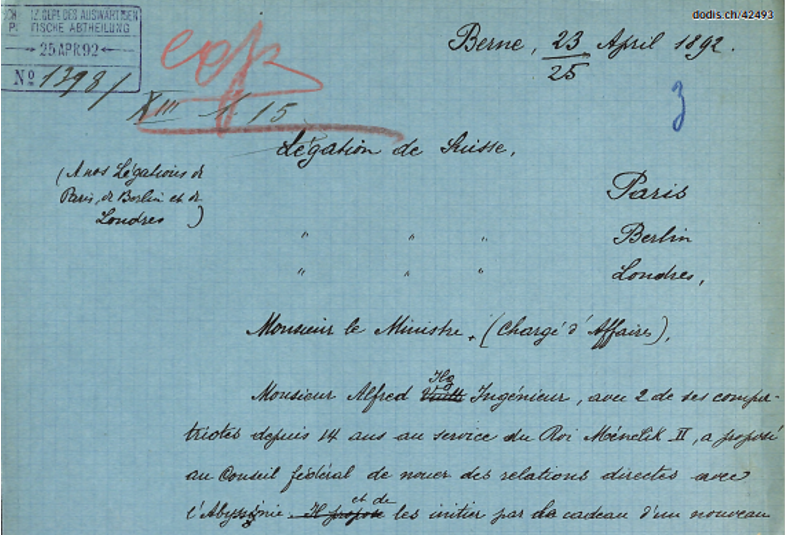 dodis.ch/42493
DEPT. DES AUSWÄRTIGEN
POLITISCHE ABTHEILUNG
25 APR 92
No 1398/
XIII 15
Berne, 23 April 1892.
25
Légation de Suisse,
(A nos Légations de
Paris, de Berlin et de
Londres )
Paris
" " " Berlin
" " " Londres,
Monsieur le Ministre, (Chargé d'Affaires),
Monsieur Alfred Ilg Ingénieur, avec 2 de ses compa-
triotes depuis 14 ans au service du Roi Ménélik II, a proposé
au Conseil fédéral de nouer des relations directes avec
l'Abyssinie Il propose et de les initier par le cadeau d'un nouveau